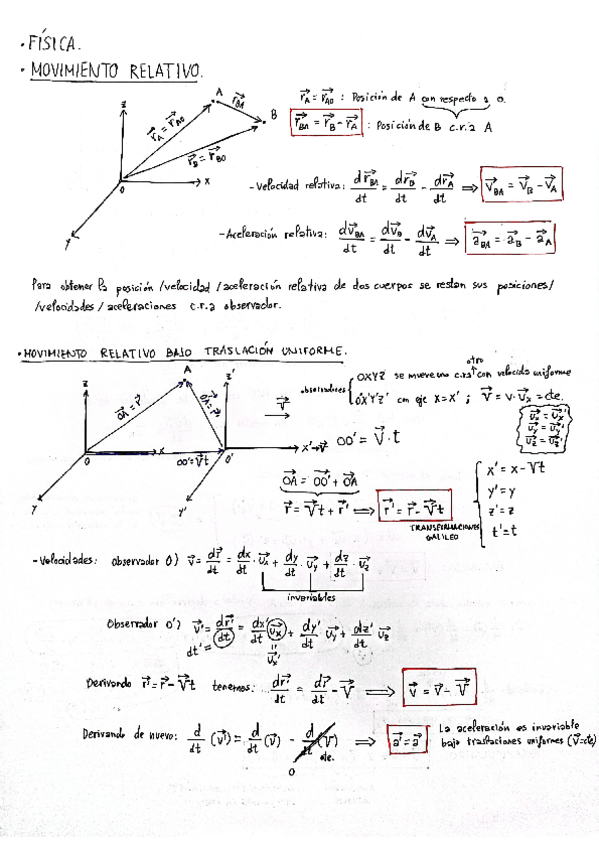 · FÍSICA.
· MOVIMIENTO RELATIVO.
z A r⃗BA B
r⃗A = r⃗AO
r⃗B = r⃗BO
O x
y
r⃗A = r⃗AO : Posición de A con respecto a O.
r⃗BA = r⃗B - r⃗A : Posición de B c.r.a A
- Velocidad relativa: dr⃗BA/dt = dr⃗B/dt - dr⃗A/dt ⇒ v⃗BA = v⃗B - v⃗A
- Aceleración relativa: dv⃗BA/dt = dv⃗B/dt - dv⃗A/dt ⇒ a⃗BA = a⃗B - a⃗A
Para obtener la posición /velocidad /aceleración relativa de dos cuerpos se restan sus posiciones/
/velocidades / aceleraciones c.r.a observador.
· MOVIMIENTO RELATIVO BAJO TRASLACIÓN UNIFORME.
z A z'
OA = r⃗
V⃗
O x OO' = V⃗t O' x'
y y'
otro
observadores OXYZ se mueve uno c.r.a con velocida uniforme
O'X'Y'Z' con eje x=x' ; V⃗ = v·u⃗x = cte.
u⃗x = u⃗x'
u⃗y = u⃗y'
u⃗z = u⃗z'
OO' = V⃗·t
OA = OO' + OA
r⃗ = V⃗t + r⃗' ⇒ r⃗' = r⃗ - V⃗t
TRANSFORMACIONES
GALILEO
x' = x - Vt
y' = y
z' = z
t' = t
- Velocidades: Observador O) v⃗ = dr⃗/dt = dx/dt · u⃗x + dy/dt · u⃗y + dz/dt · u⃗z
invariables
Observador O') v⃗' = dr⃗'/dt = dx'/dt u⃗x + dy'/dt u⃗y + dz'/dt u⃗z
dt' =
u⃗x'
Derivando r⃗' = r⃗ - V⃗t tenemos: dr⃗'/dt = dr⃗/dt - V⃗ ⇒ v⃗ = v⃗ - V⃗
Derivando de nuevo: d/dt (v⃗') = d/dt (v⃗) - d/dt (V⃗) ⇒ a⃗' = a⃗
0 cte.
La aceleración es invariable
bajo traslaciones uniformes (V⃗=cte)